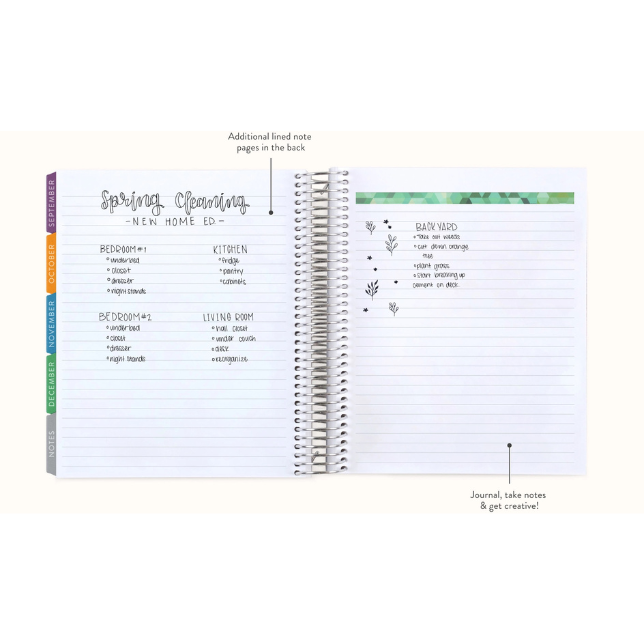 Additional lined note
pages in the back
SEPTEMBER
OCTOBER
NOVEMBER
DECEMBER
NOTES
Spring Cleaning
- NEW HOME ED. -
BEDROOM #1
underbed
closet
dresser
night stands
KITCHEN
fridge
pantry
cabinets
BEDROOM #2
underbed
closet
dresser
night stands
LIVING ROOM
hall closet
under couch
desk
reorganize
BACK YARD
Take out weeds
cut down orange
tree
plant grass
start breaking up
cement on deck.
Journal, take notes
& get creative!